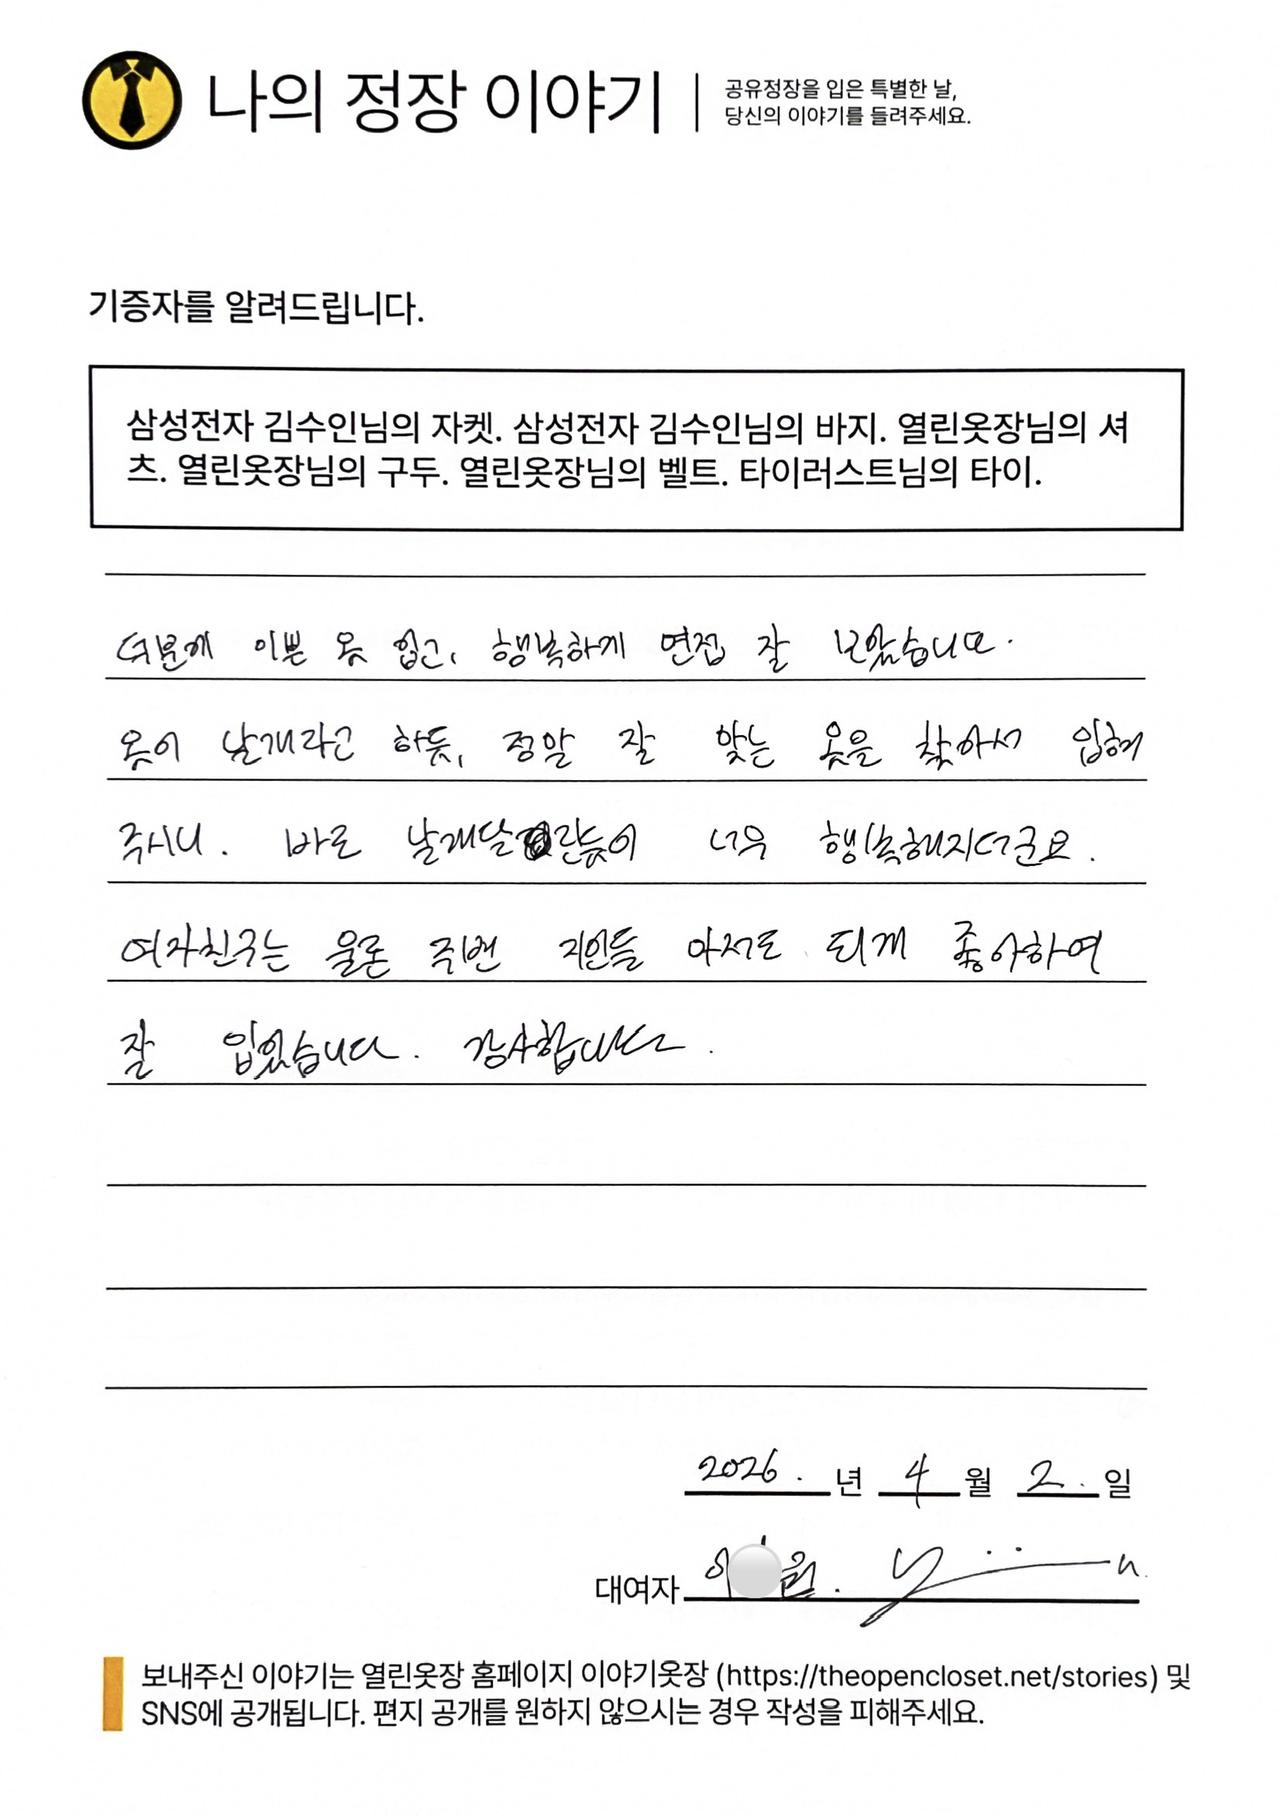 나의 정장 이야기
공유정장을 입은 특별한 날,
당신의 이야기를 들려주세요.
기증자를 알려드립니다.
삼성전자 김수인님의 자켓. 삼성전자 김수인님의 바지. 열린옷장님의 셔
츠. 열린옷장님의 구두. 열린옷장님의 벨트. 타이러스트님의 타이.
덕분에 이쁜 옷 입고, 행복하게 면접 잘 보았습니다.
옷이 날개라고 하듯, 정말 잘 맞는 옷을 찾아서 입혀
주시니. 바로 날개달린듯이 너무 행복해지더군요.
여자친구는 물론 주변 지인들 마저도 되게 좋아하여
잘 입었습니다. 감사합니다.
2026. 년 4 월 2. 일
대여자
보내주신 이야기는 열린옷장 홈페이지 이야기옷장 (https://theopencloset.net/stories) 및
SNS에 공개됩니다. 편지 공개를 원하지 않으시는 경우 작성을 피해주세요.